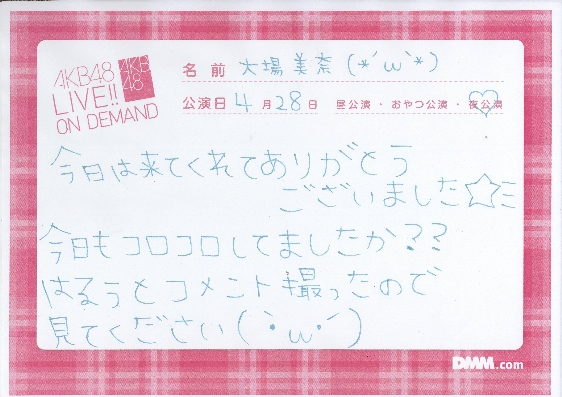 AKB48
LIVE!!
ON DEMAND
AKB
48
名前 大場美奈(*´ω`*)
公演日 4月28日 昼公演・おやつ公演・夜公演
今日は来てくれてありがとう
ございました☆ミ
今日もコロコロしてましたか??
はるぅとコメント撮ったので
見てください(`・ω・´)
DMM.com